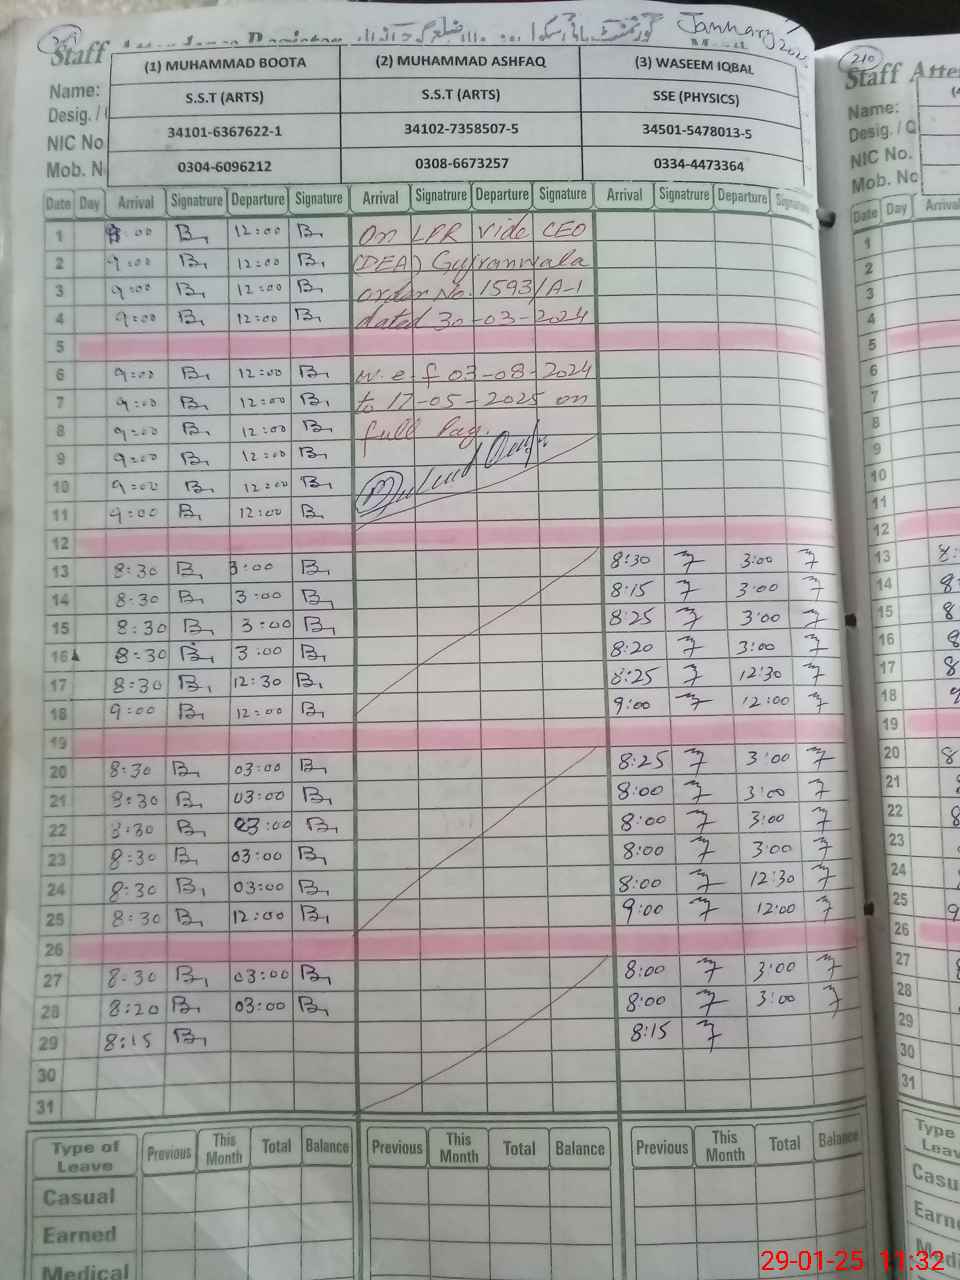 209
January 2025
Staff Attendance Register
(1) MUHAMMAD BOOTA (2) MUHAMMAD ASHFAQ (3) WASEEM IQBAL
Name:
S.S.T (ARTS) S.S.T (ARTS) SSE (PHYSICS)
Desig. /
NIC No 34101-6367622-1 34102-7358507-5 34501-5478013-5
Mob. N 0304-6096212 0308-6673257 0334-4473364
Date Day Arrival Signatrure Departure Signature Arrival Signatrure Departure Signature Arrival Signatrure Departure Signature
1 9:00 12:00 On LPR vide CEO
2 9:00 12:00 (DEA) Gujranwala
3 9:00 12:00 order No. 1593/A-1
4 9:00 12:00 dated 30-03-2024
5
6 9:00 12:00 w.e.f 03-08-2024
7 9:00 12:00 to 17-05-2025 on
8 9:00 12:00 full Pay.
9 9:00 12:00
10 9:00 12:00
11 9:00 12:00
12
13 8:30 3:00 8:30 3:00
14 8:30 3:00 8:15 3:00
15 8:30 3:00 8:25 3:00
16 8:30 3:00 8:20 3:00
17 8:30 12:30 8:25 12:30
18 9:00 12:00 9:00 12:00
19
20 8:30 03:00 8:25 3:00
21 8:30 03:00 8:00 3:00
22 8:30 03:00 8:00 3:00
23 8:30 03:00 8:00 3:00
24 8:30 03:00 8:00 12:30
25 8:30 12:00 9:00 12:00
26
27 8:30 03:00 8:00 3:00
28 8:20 03:00 8:00 3:00
29 8:15 8:15
30
31
Type of Leave Previous This Month Total Balance Previous This Month Total Balance Previous This Month Total Balance
Casual
Earned
Medical
210
Staff Atte
Name:
Desig. / Q
NIC No.
Mob. No
Date Day Arrival
1
2
3
4
5
6
7
8
9
10
11
12
13
14
15
16
17
18
19
20
21
22
23
24
25
26
27
28
29
30
31
Type
Leav
Casu
Earn
Medi
29-01-25 11:32